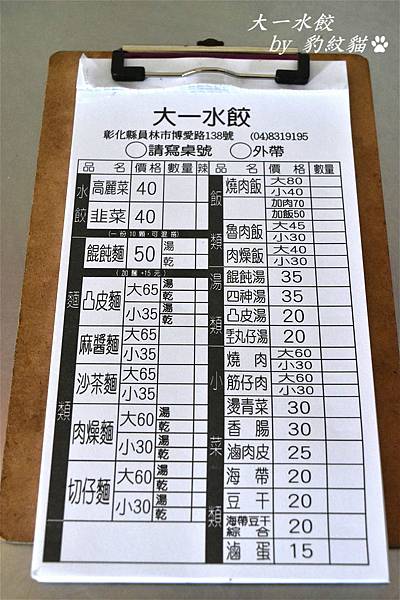 大一水餃
by 豹紋貓
大一水餃
彰化縣員林市博愛路138號 (04)8319195
○請寫桌號 ○外帶
品名 價格 數量 辣
水餃
高麗菜 40
韭菜 40
(一份10顆,可混搭)
餛飩麵 50 湯 乾
(加麵+15元)
麵類
凸皮麵 大65 湯 乾
小35 湯 乾
麻醬麵 大65
小35
沙茶麵 大65
小35
肉燥麵 大60 湯 乾
小30 湯 乾
切仔麵 大60 湯 乾
小30 湯 乾
品名 價格 數量
飯類
燒肉飯 大80
小40
加肉70
加飯50
魯肉飯 大45
小30
肉燥飯 大40
小30
湯類
餛飩湯 35
四神湯 35
凸皮湯 20
丸仔湯 20
小菜類
燒肉 大60
小30
筋仔肉 大60
小30
燙青菜 30
香腸 30
滷肉皮 25
海帶 20
豆干 20
海帶豆干綜合 20
滷蛋 15